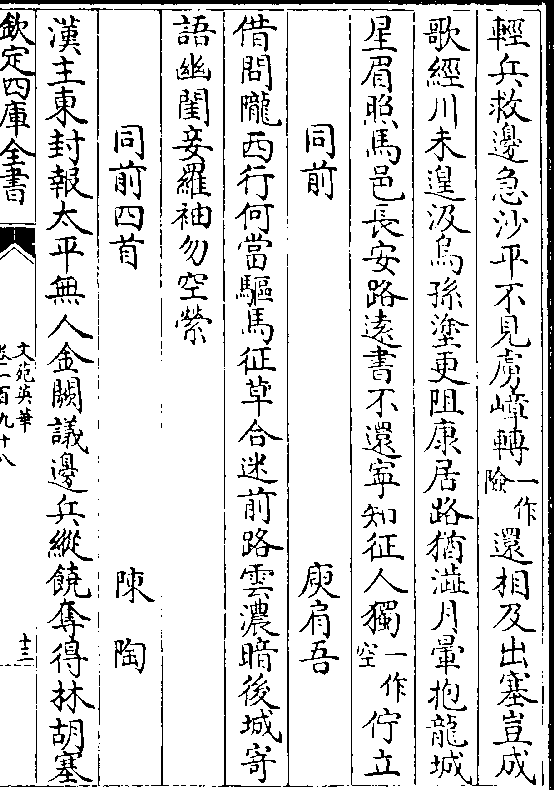 輕兵救邊急沙平不見虜嶂轉一作險還相及出塞豈成
歌經川未遑汲烏孫塗更阻康居路猶澁月暈抱龍城
星眉照馬邑長安路遠書不還寧知征人獨一作空佇立
同前 庾肩吾
借問隴西行何當驅馬征草合迷前路雲濃暗後城寄
語幽閨妾羅袖勿空縈
同前四首 陳陶
漢主東封報太平無人金闕議邊兵縱饒奪得林胡塞
欽定四庫全書
文苑英華
卷二百九十八
十三